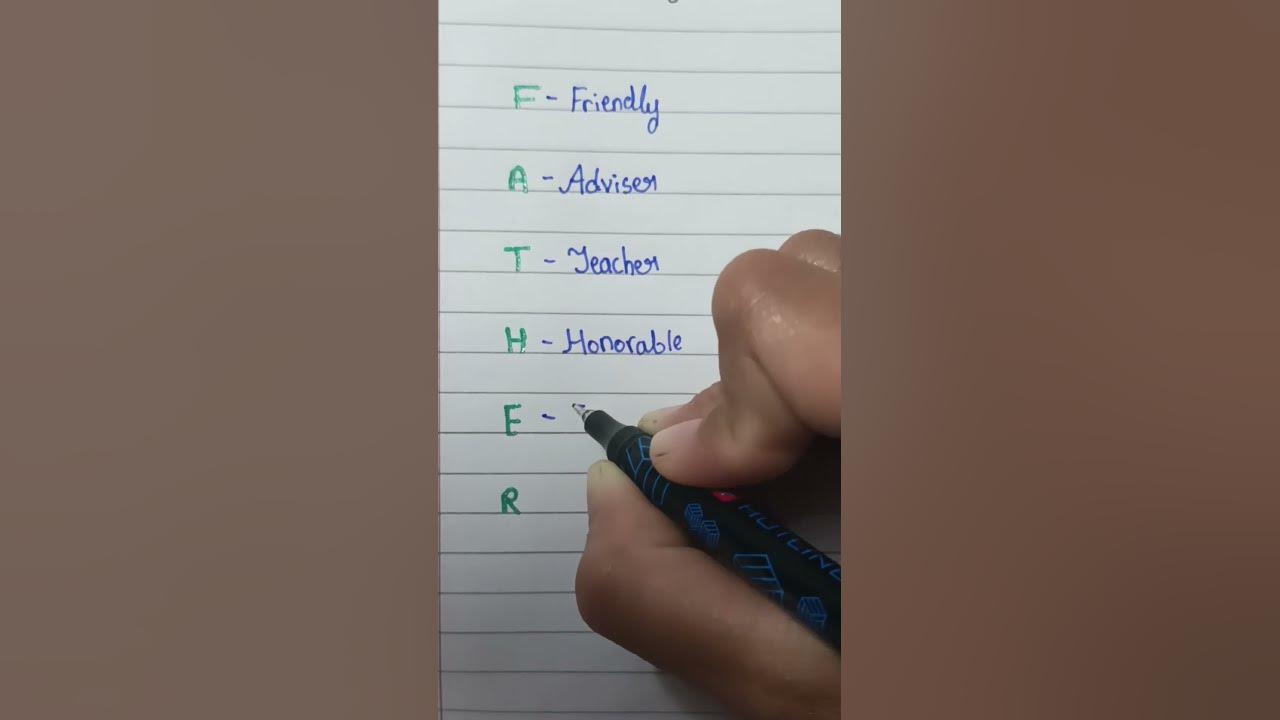 F - Friendly
A - Adviser
T - Teacher
H - Honorable
E -
R
HUTLINE